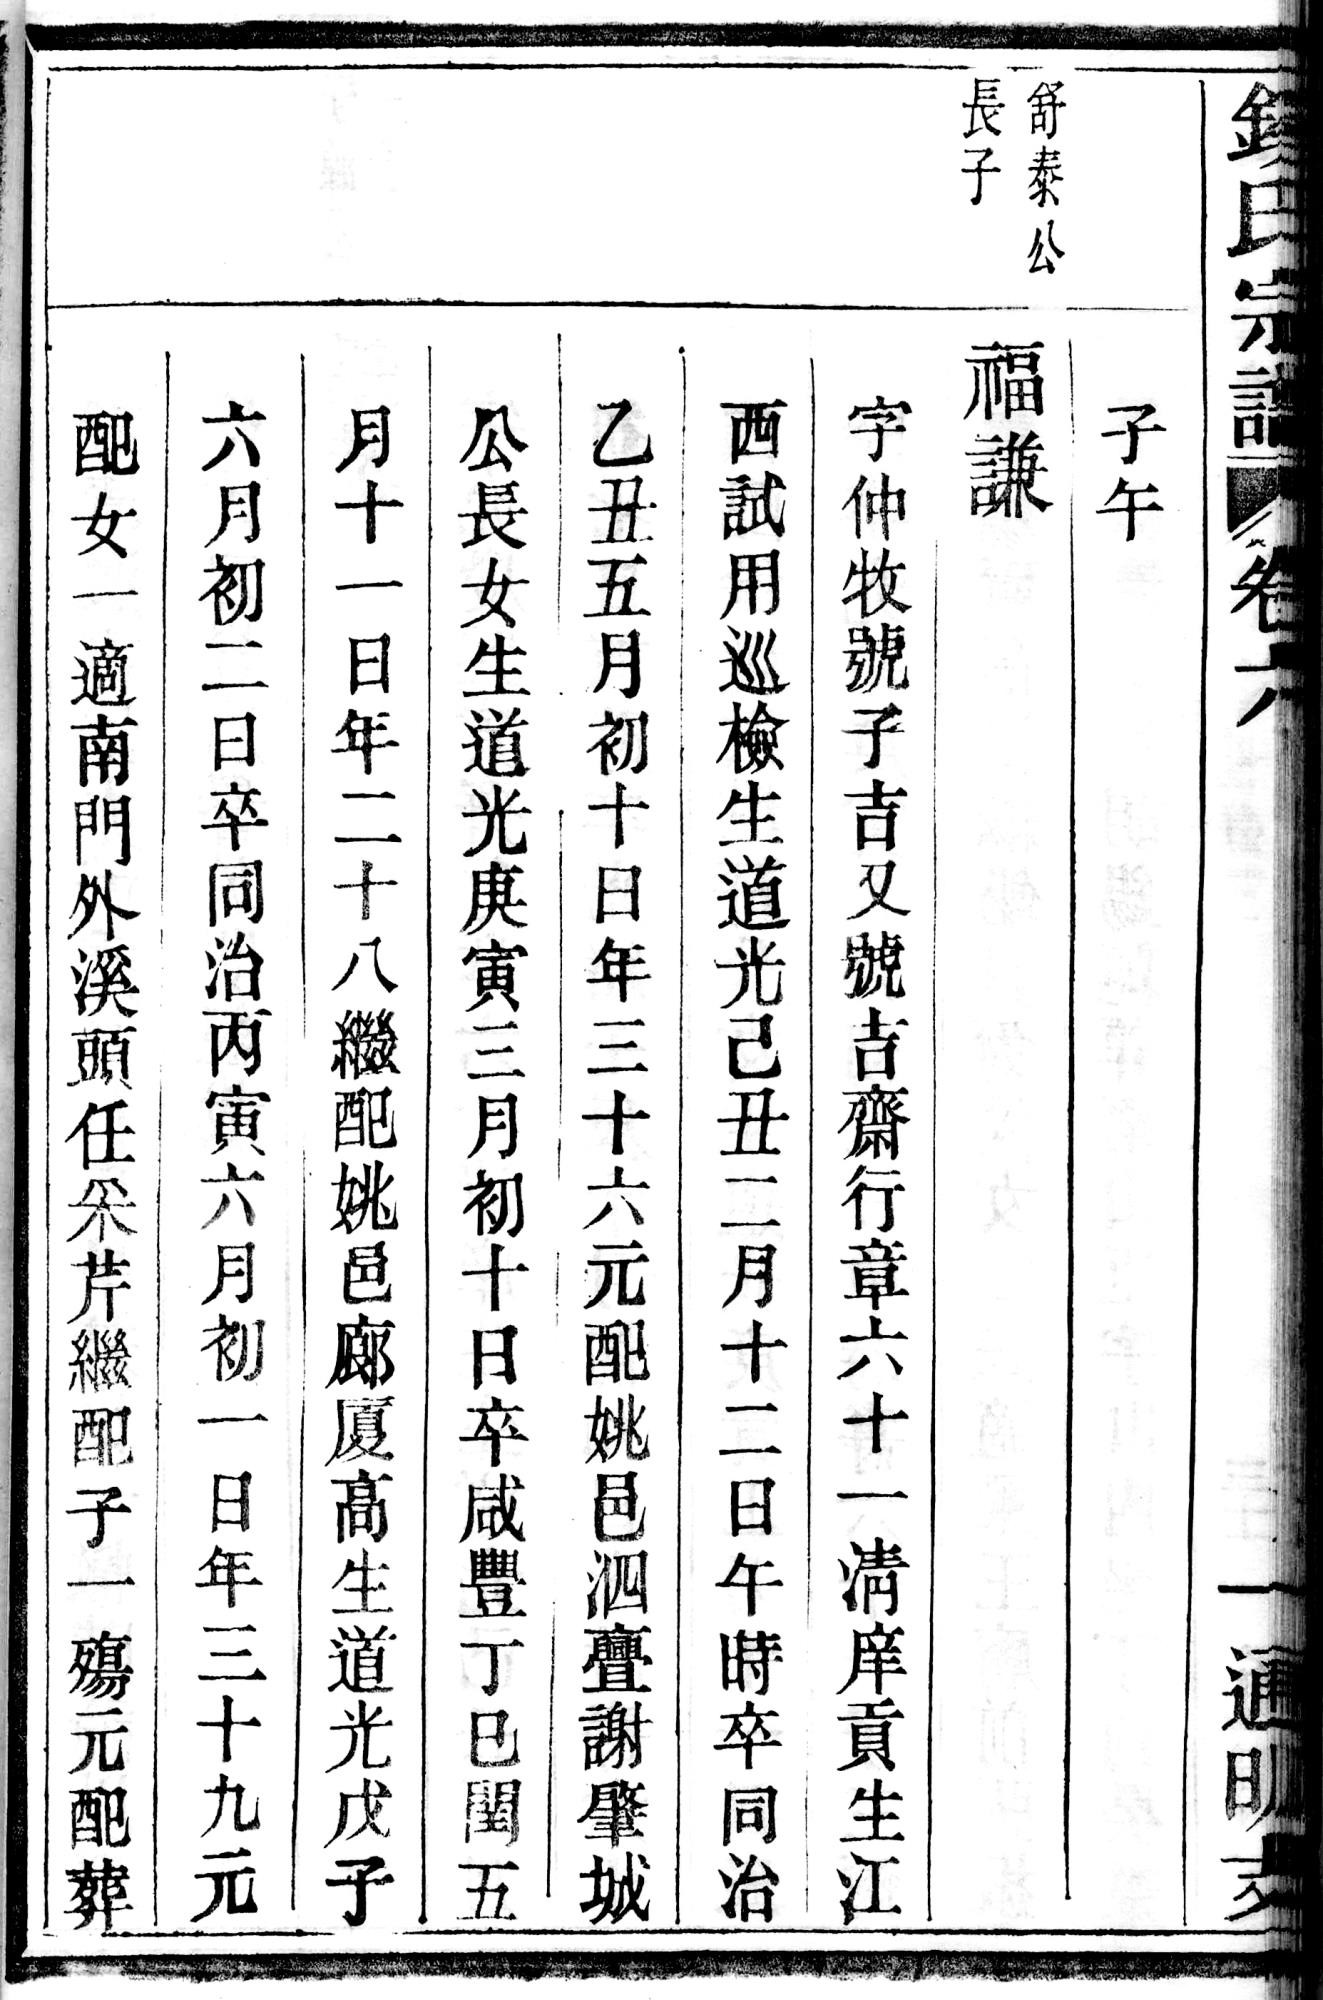 氏宗譜 卷六 一 通明
子午
舒泰公
長子
福謙
字仲牧號子吉又號吉齋行章六十一清庠貢生江
西試用巡檢生道光己丑二月十二日午時卒同治
乙丑五月初十日年三十六元配姚邑泗亹謝肇城
公長女生道光庚寅三月初十日卒咸豐丁巳閏五
月十一日年二十八繼配姚邑廊厦高生道光戊子
六月初二日卒同治丙寅六月初一日年三十九元
配女一適南門外溪頭任采芹繼配子一殤元配葬